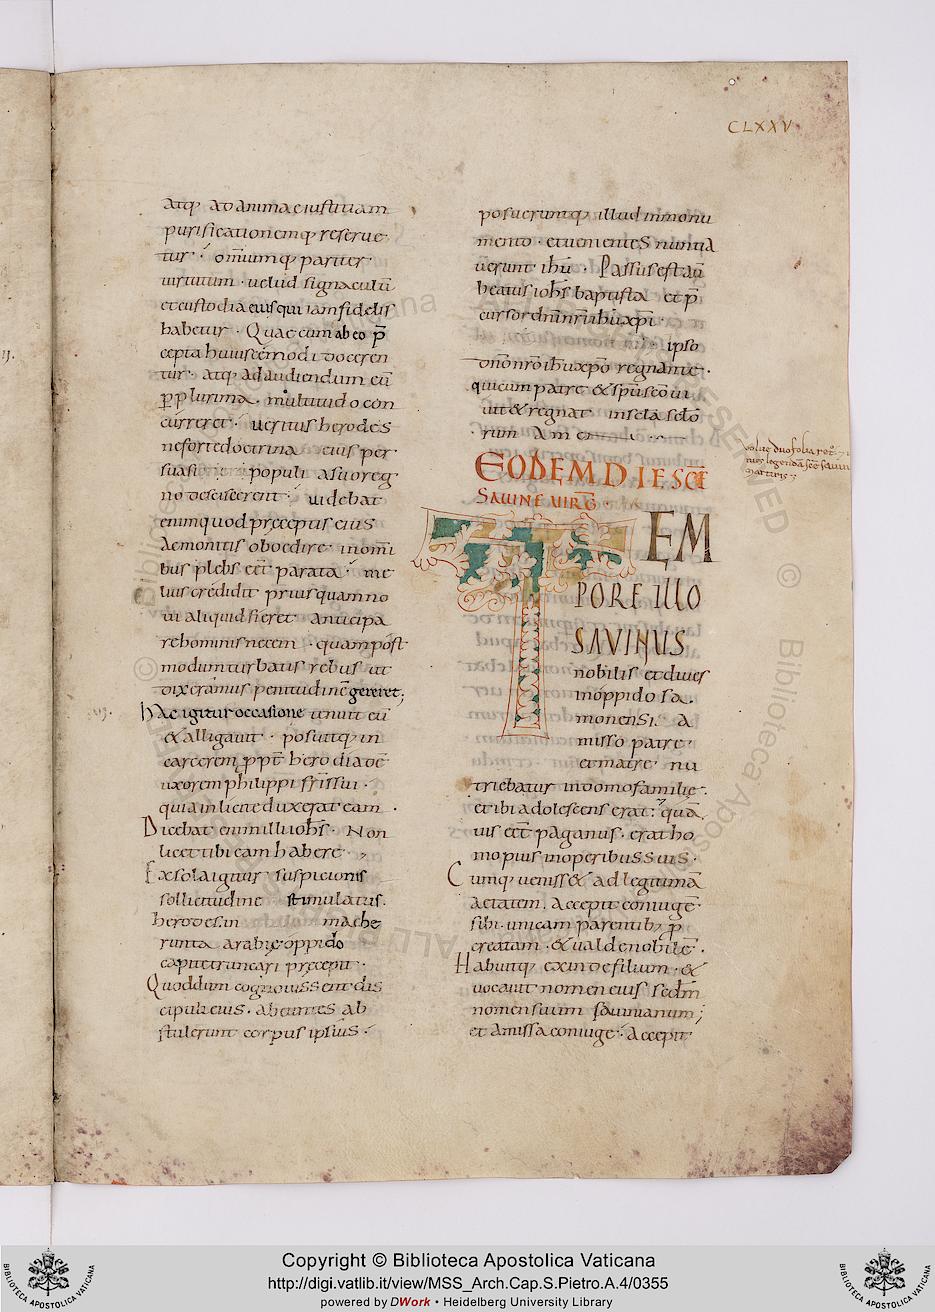 CLXXV
atq; ad animae iustitiam
purificationemq; reserue
tur · om̅iumq; pariter
uirtutum · uelud signaculū
et custodia eiusqui iam fidelis
habetur · Quae cum ab eo p̅
cepta huiuscemodi doceren
tur · atq; ad audiendum eū
p̱plurima · multitudo con
curreret · ueritus herodes
ne forte doctrina eius per
suasi populi a suo reg
no desciscerent · uidebat
enim quod preceptis eius
ac monitis oboedire · in om̅i
bus plebs eēt parata · me
lius credidit prius quam no
ui aliquid fieret anticipa
re hominis necem · quam post
modum turbatis rebus ut
dixeramus penitudinē gereret;
Hac igitur occasione tenuit eū
& alligauit · posuitq; in
carcerem p̱pt̄ herodiadē
uxorem philippi fr̄is sui ·
quia inlicite duxerat eam ·
Dicebat enim illi ioh̅s · Non
licet tibi eam habere ·
Ex sola igitur suspicionis
sollicitudine stimulatus ·
herodes in mache
runta arabiȩ oppido
capite truncari precepit ·
Quod dum cognouissent dis
cipuli eius · abeuntes ab
stulerunt corpus ipsius ·
posueruntq; illud in monu
mento · et uenientes nuntia
uerunt ih̅u · Passus est aū
beatus ioh̅s baptista et p̄
cursor dn̅i nr̅i ih̅u xp̅i ·
ipso
dn̅o nr̅o ih̅u xp̅o regnante ·
qui cum patre & sp̅u sc̅o ui
uit & regnat in sc̅la sc̅lo
rum Amen
EODEM DIE SCE
SAVINE VIRG̅
TEM
PORE ILLO
SAVINUS
nobilis et diues
in oppido sa
monensi · a
misso patre ·
et matre · nu
triebatur in domo familie ·
et ibi adolescens erat · quā
uis eēt paganus · erat ho
mo pius in operibus suis ·
Cumq; uenisset ad legitimā
aetatem · accepit coniugē ·
sibi · unicam parentib; p̱
creatam · & ualde nobilē ·
Habuitq; exinde filium · &
uocauit nomen eius sec̅dm
nomen suum sauinianum;
et amissa coniuge · accepit
Copyright © Biblioteca Apostolica Vaticana
http://digi.vatlib.it/view/MSS_Arch.Cap.S.Pietro.A.4/0355
powered by DWork • Heidelberg University Library
BIBLIOTECA APOSTOLICA VATICANA
BIBLIOTECA APOSTOLICA VATICANA